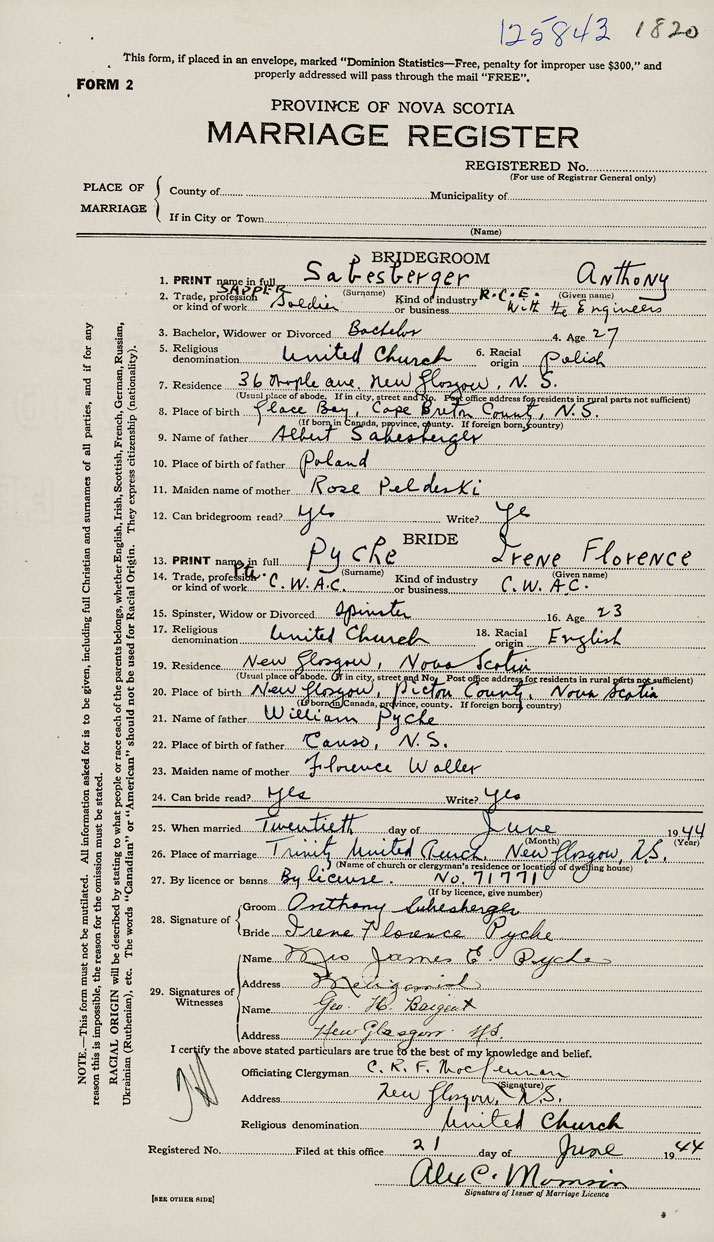 125843 1820
This form, if placed in an envelope, marked "Dominion Statistics—Free, penalty for improper use $300," and
properly addressed will pass through the mail "FREE".
FORM 2
PROVINCE OF NOVA SCOTIA
MARRIAGE REGISTER
REGISTERED No.
(For use of Registrar General only)
PLACE OF MARRIAGE
County of Municipality of
If in City or Town
(Name)
BRIDEGROOM
1. PRINT name in full Sabesberger Anthony
(Surname) (Given name)
SAPPER R.C.E.
2. Trade, profession or kind of work Soldier Kind of industry or business With the Engineers
3. Bachelor, Widower or Divorced Bachelor 4. Age 27
5. Religious denomination United Church 6. Racial origin Polish
7. Residence 36 Maple ave. New Glasgow, N.S.
(Usual place of abode. If in city, street and No. Post office address for residents in rural parts not sufficient)
8. Place of birth Glace Bay, Cape Breton County, N.S.
(If born in Canada, province, county. If foreign born, country)
9. Name of father Albert Sabesberger
10. Place of birth of father Poland
11. Maiden name of mother Rose Peldeski
12. Can bridegroom read? yes Write? Ye
BRIDE
13. PRINT name in full Pyche Irene Florence
(Surname) (Given name)
14. Trade, profession or kind of work Pte. C.W.A.C. Kind of industry or business C.W.A.C.
15. Spinster, Widow or Divorced Spinster 16. Age 23
17. Religious denomination United Church 18. Racial origin English
19. Residence New Glasgow, Nova Scotia
(Usual place of abode. If in city, street and No. Post office address for residents in rural parts not sufficient)
20. Place of birth New Glasgow, Pictou County, Nova Scotia
(If born in Canada, province, county. If foreign born, country)
21. Name of father William Pyche
22. Place of birth of father Canso, N.S.
23. Maiden name of mother Florence Waller
24. Can bride read? Yes Write? Yes
25. When married Twentieth day of June 1944
(Month) (Year)
26. Place of marriage Trinity United Church, New Glasgow, N.S.
(Name of church or clergyman's residence or location of dwelling house)
27. By licence or banns By license. No. 71771
(If by licence, give number)
28. Signature of
Groom Anthony Subesberger
Bride Irene Florence Pyche
29. Signatures of Witnesses
Name Mrs James E. Pyche
Address Merigomish
Name Geo. H. Bargent
Address New Glasgow N.S.
I certify the above stated particulars are true to the best of my knowledge and belief.
Officiating Clergyman C. R. F. MacLennan
(Signature)
Address New Glasgow, N.S.
Religious denomination United Church
Registered No. Filed at this office 21 day of June 1944
Alex C. Morrison
Signature of Issuer of Marriage Licence
[SEE OTHER SIDE]
NOTE.—This form must not be mutilated. All information asked for is to be given, including full Christian and surnames of all parties, and if for any
reason this is impossible, the reason for the omission must be stated.
RACIAL ORIGIN will be described by stating to what people or race each of the parents belongs, whether English, Irish, Scottish, French, German, Russian,
Ukrainian (Ruthenian), etc. The words "Canadian" or "American" should not be used for Racial Origin. They express citizenship (nationality).